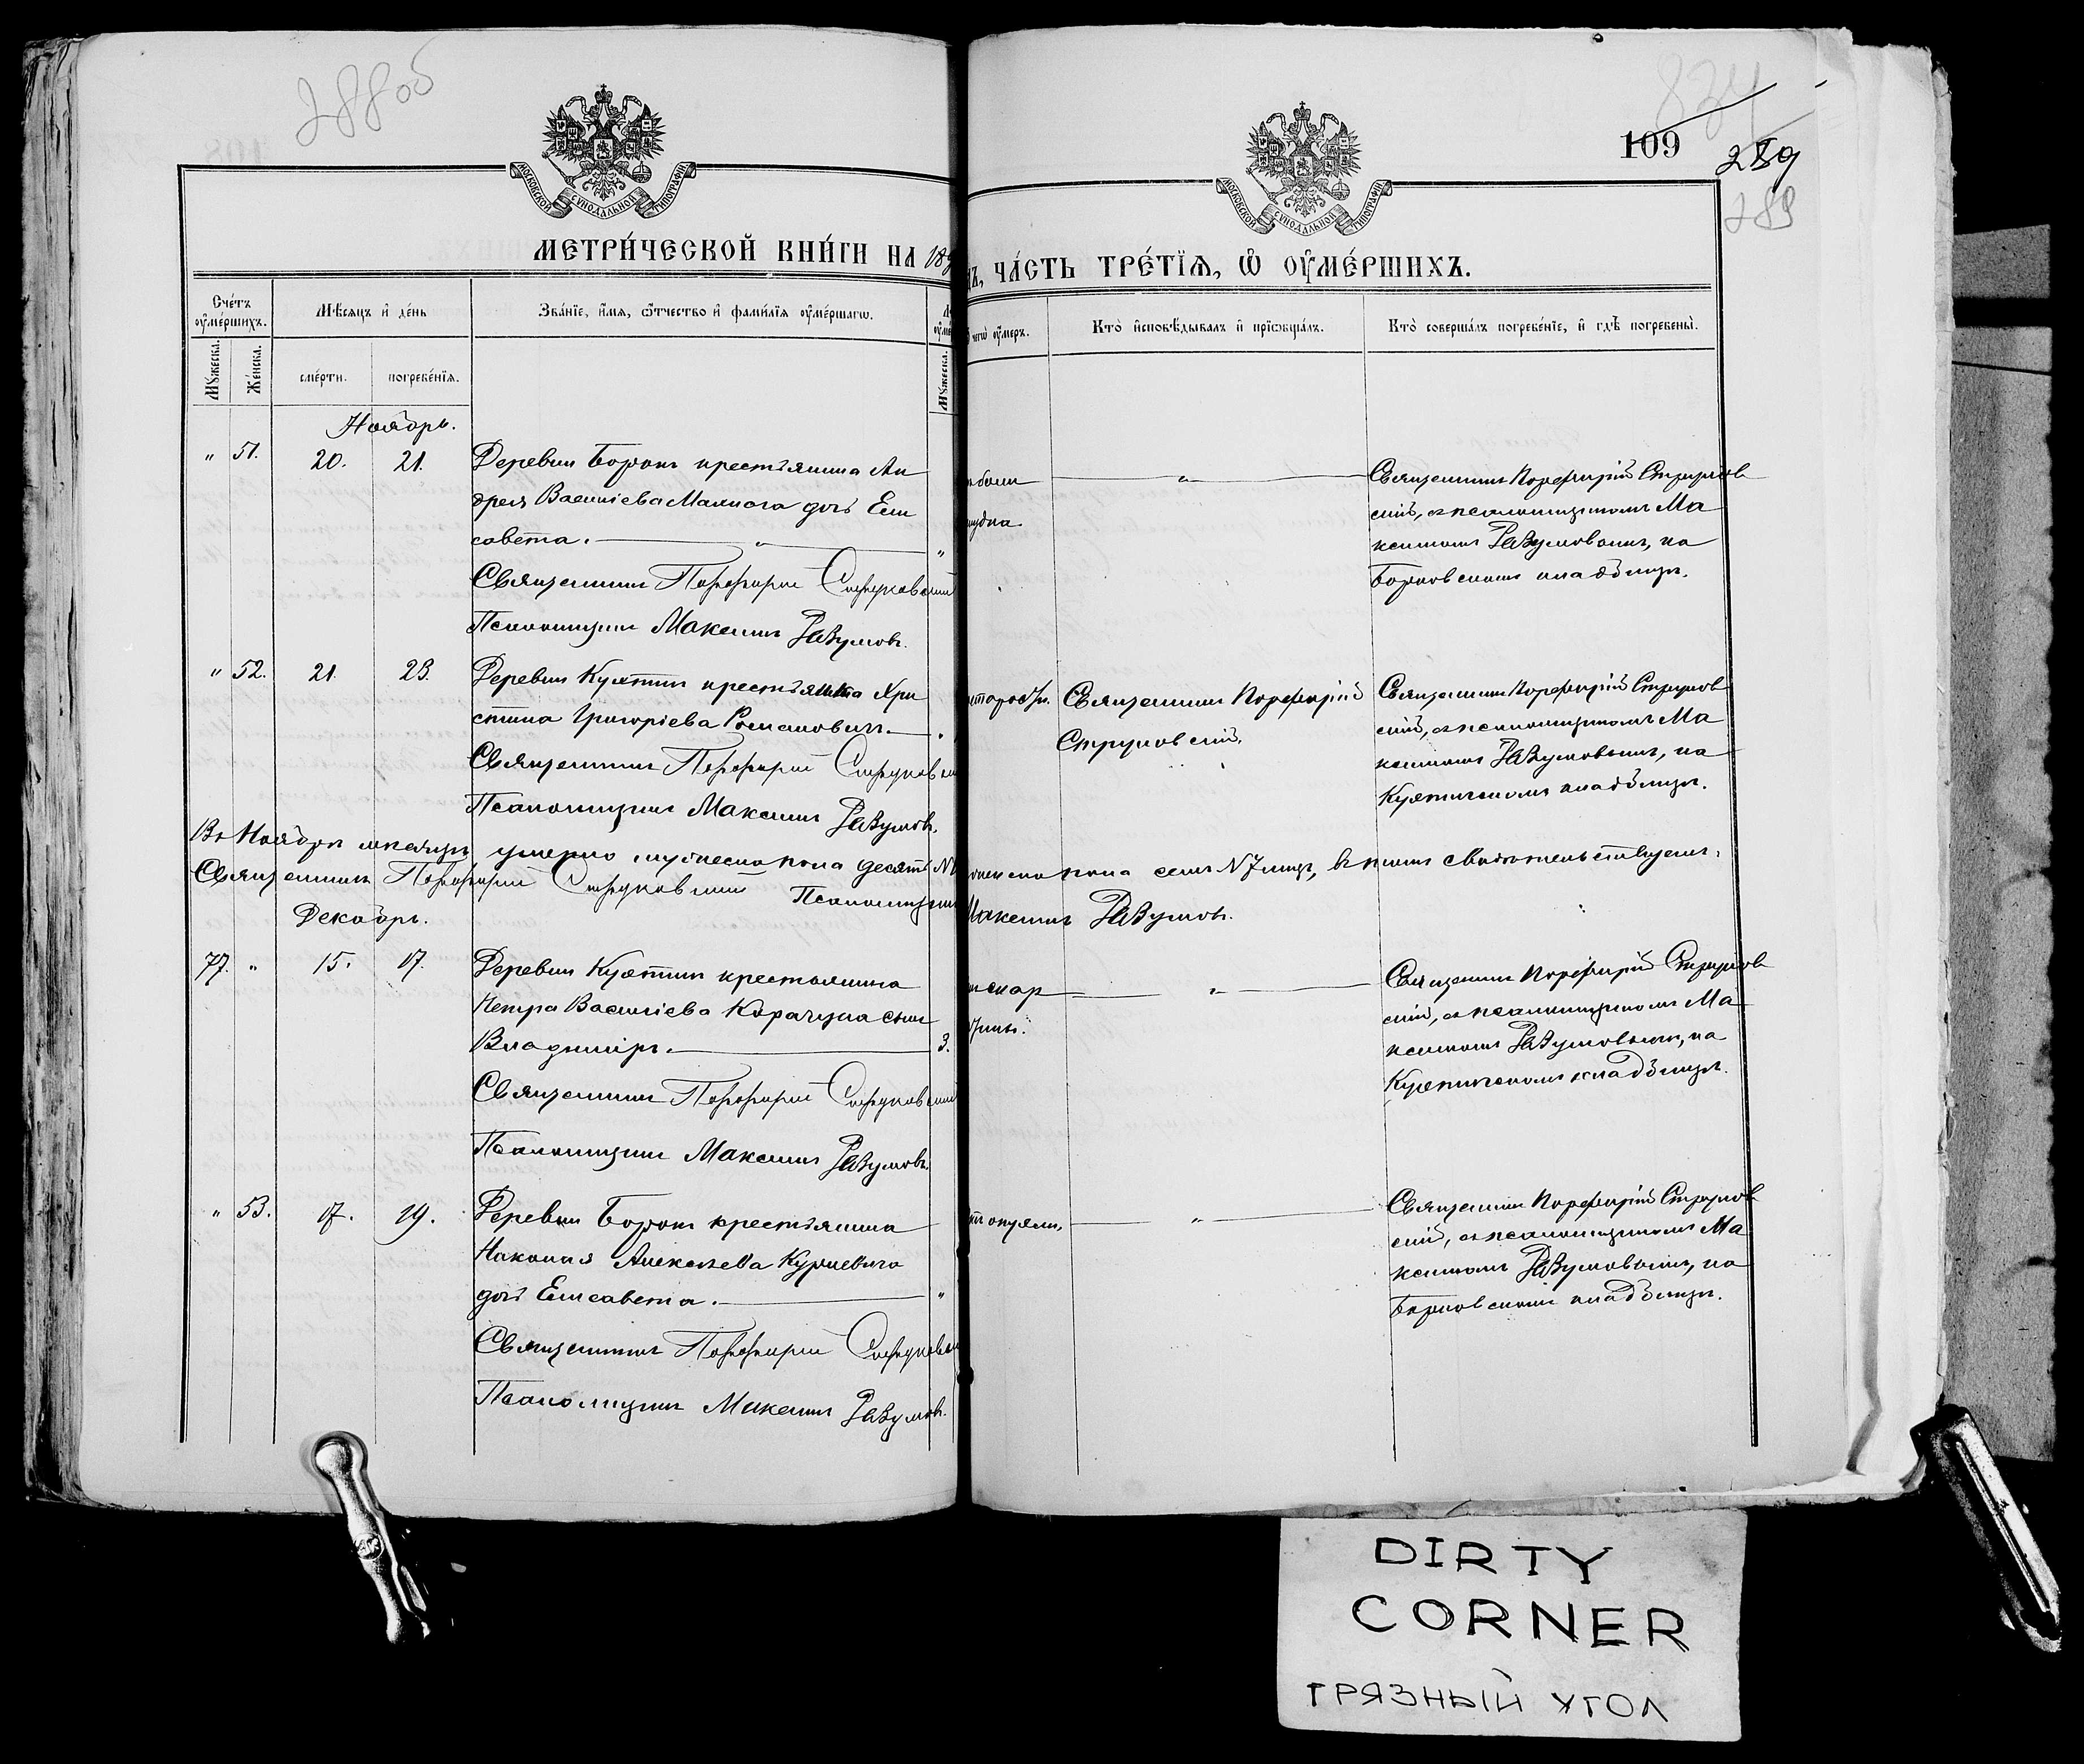 288об
МОСКОВСКОЙ СУНОДАЛЬНОЙ ТИПОГРАФІИ
МЕТРИ́ЧЕСКОЙ КНИ́ГИ НА 189
Сче́тъ ѹ҆ме́ршихъ.
Мѣ́сяцъ и҆ де́нь
Зва́нїе, и҆́мя, ѻ҆́тчество и҆ фами́лїя ѹ҆ме́ршагѡ.
Мꙋжеска.
Же́нска.
сме́рти.
погребе́нїя.
Мꙋжеска.
Ноябрь.
" 51. 20. 21. Деревни Борокъ крестьянина Ан
дрея Васильева Малаго дочь Ели
савета. "
Священникъ Порфирій Струковскій
Псаломщикъ Максимъ Разумовъ.
" 52. 21. 23. Деревни Куятинъ крестьянка Хри
стина Григоріева Романовичъ.
Священникъ Порфирій Струковскій
Псаломщикъ Максимъ Разумовъ.
Въ Ноябрѣ мѣсяцѣ умерло мужеска пола десять
Священникъ Порфирій Струковскій Псаломщикъ
Декабрь.
77. " 15. 17. Деревни Куятинъ крестьянина
Петра Васильева Корачуна сынъ
Владиміръ. 3.
Священникъ Порфирій Струковскій
Псаломщикъ Максимъ Разумовъ.
" 53. 17. 19. Деревни Борокъ крестьянина
Алексѣева Курневича
дочь Елисавета. "
Священникъ Порфирій Струковскій
Псаломщикъ Максимъ Разумовъ.
834
109
289
289
МОСКОВСКОЙ СУНОДАЛЬНОЙ ТИПОГРАФІИ
ЧА́СТЬ ТРЕ́ТЇЯ, Ѡ҆ ОУ҆МЕ́РШИХЪ.
чегѡ ѹ҆́меръ.
Кто̀ и҆сповѣ́дывалъ и҆ прїѡбща́лъ.
Кто̀ соверша́лъ погребе́нїе, и҆ гдѣ̀ погребены̀.
боли " Священникъ Порфирій Струков
скій, съ псаломщикомъ Ма
ксимомъ Разумовымъ, на
Борковскомъ кладбищѣ.
старости. Священникъ Порфирій Священникъ Порфирій Струков
Струковскій. скій, съ псаломщикомъ Ма
ксимомъ Разумовымъ, на
Куятинскомъ кладбищѣ.
женска пола семь N7 лицъ, въ чемъ свидѣтельствуемъ:
Максимъ Разумовъ.
скар " Священникъ Порфирій Струков
скій, съ псаломщикомъ Ма
ксимомъ Разумовымъ, на
Куятинскомъ кладбищѣ.
" Священникъ Порфирій Струков
скій, съ псаломщикомъ Ма
ксимомъ Разумовымъ, на
Борковскомъ кладбищѣ.
DIRTY
CORNER
ГРЯЗНЫЙ УГОЛ